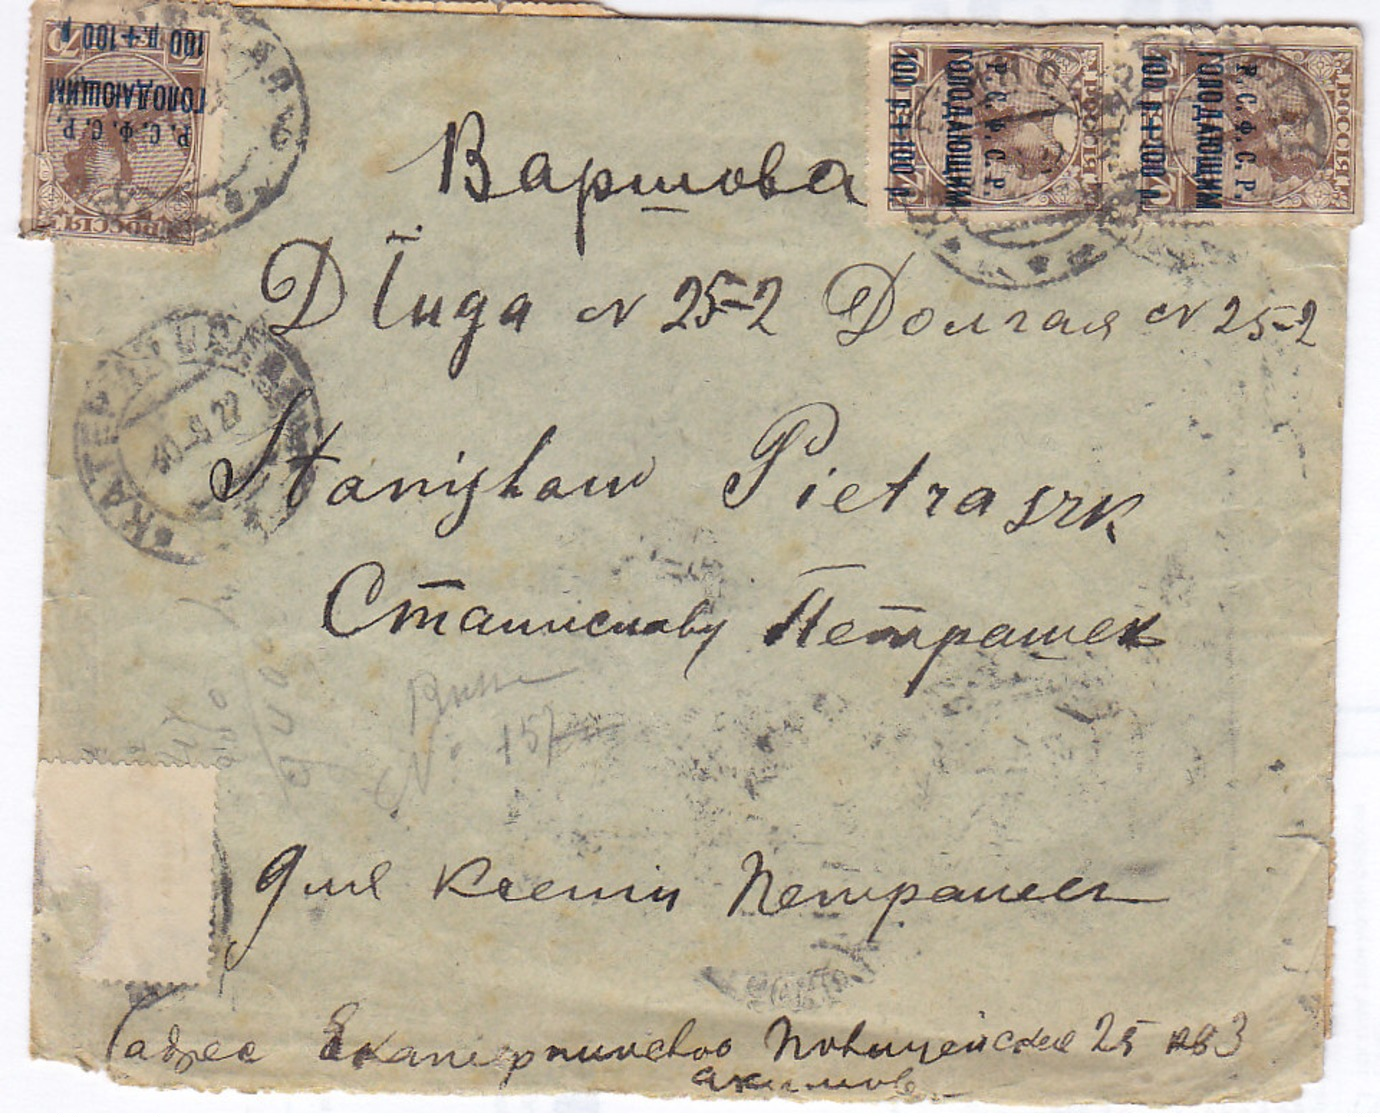 Р. С. Ф. С. Р.
ГОЛОДАЮЩИМ
100 р.+100 р.
РОССІЯ
Р. С. Ф. С. Р.
ГОЛОДАЮЩИМ
100 р.+100 р.
РОССІЯ
Р. С. Ф. С. Р.
ГОЛОДАЮЩИМ
100 р.+100 р.
РОССІЯ
Варшова
Długa № 25-2 Долгая № 25-2
Stanisław Pietraszk
Станиславу Петрашек
№ 157
Для Ксении Петрашек
(адрес Екатеринослав 25 кв 3